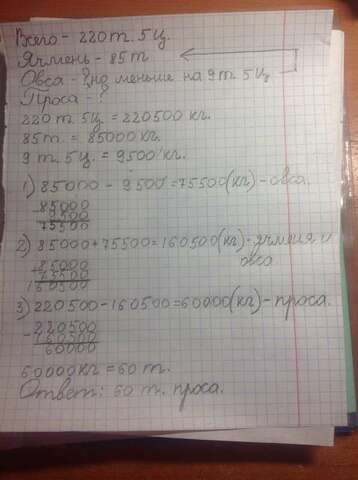 Всего - 220 т. 5 ц.
Ячмень - 85 т
Овса - ? на меньше на 9 т. 5 ц
Проса - ?
220 т. 5 ц. = 220500 кг.
85 т = 85000 кг.
9 т. 5 ц. = 9500 кг.
1) 85000 - 9500 = 75500 (кг) - овса.
- 85000
9500
75500
2) 85000 + 75500 = 160500 (кг) - ячменя и
овса
+ 85000
75500
160500
3) 220500 - 160500 = 60000 (кг) - проса.
- 220500
160500
60000
60000 кг = 60 т.
Ответ: 60 т. проса.